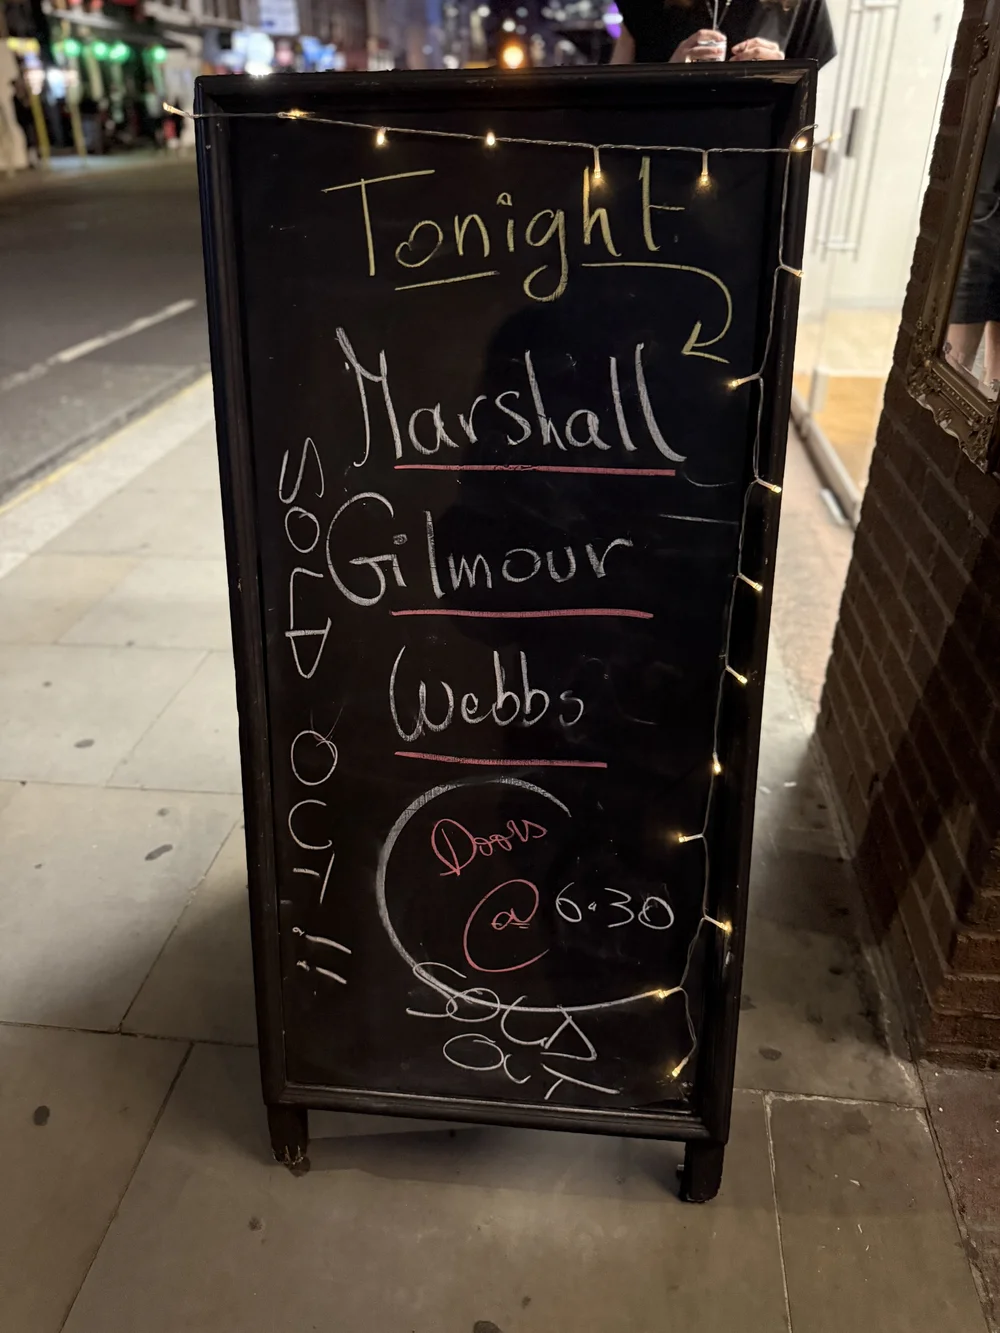 Tonight
Marshall
Gilmour
Webbs
Doors
@ 6.30
SOLD
OUT
SOLD OUT !!